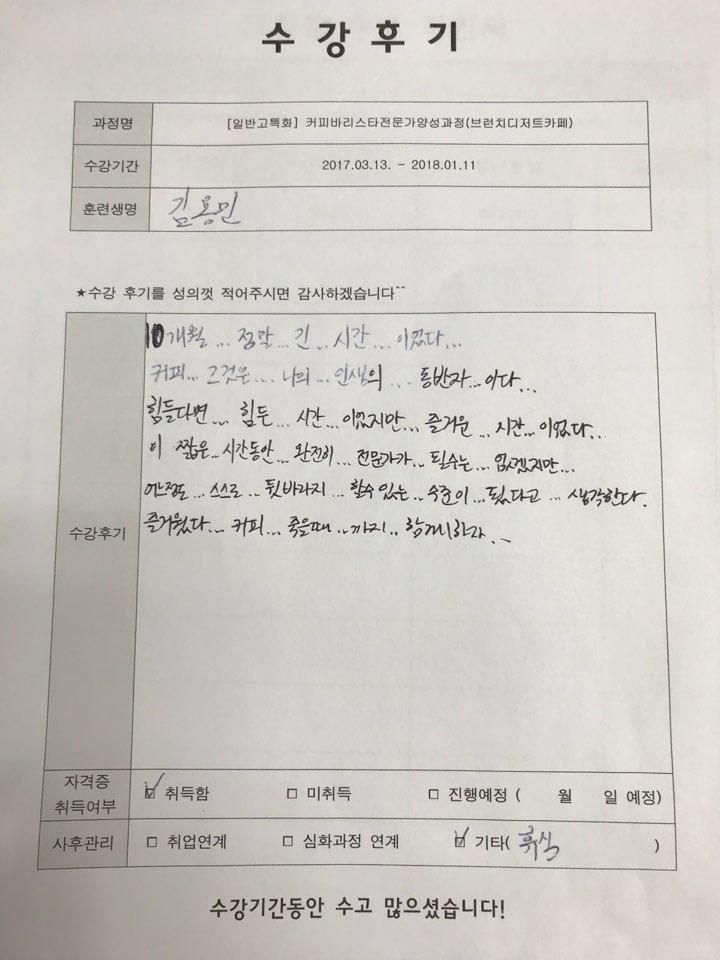 수 강 후 기
과정명 [일반고특화] 커피바리스타전문가양성과정(브런치디저트카페)
수강기간 2017.03.13. - 2018.01.11
훈련생명 김용민
★수강 후기를 성의껏 적어주시면 감사하겠습니다^^
수강후기
10개월 ... 정말 ... 긴 ... 시간 ... 이었다...
커피... 그것은 ... 나의 ... 인생의 ... 동반자 ... 이다...
힘들다면 ... 힘든 ... 시간 ... 이었지만 ... 즐거운 ... 시간 ... 이었다..
이 짧은 .. 시간동안 ... 완전히 ... 전문가가 .. 될수는 .. 없겠지만 ...
어느정도 ... 스스로 .. 뒷바라지 ... 할수 있는 .. 수준이 .. 됬다고 ... 생각한다.
즐거웠다... 커피 ... 죽을때 .. 까지 .. 함께하자..~
자격증 취득여부 ☑ 취득함 □ 미취득 □ 진행예정 ( 월 일 예정)
사후관리 □ 취업연계 □ 심화과정 연계 ☑ 기타( 휴식 )
수강기간동안 수고 많으셨습니다!